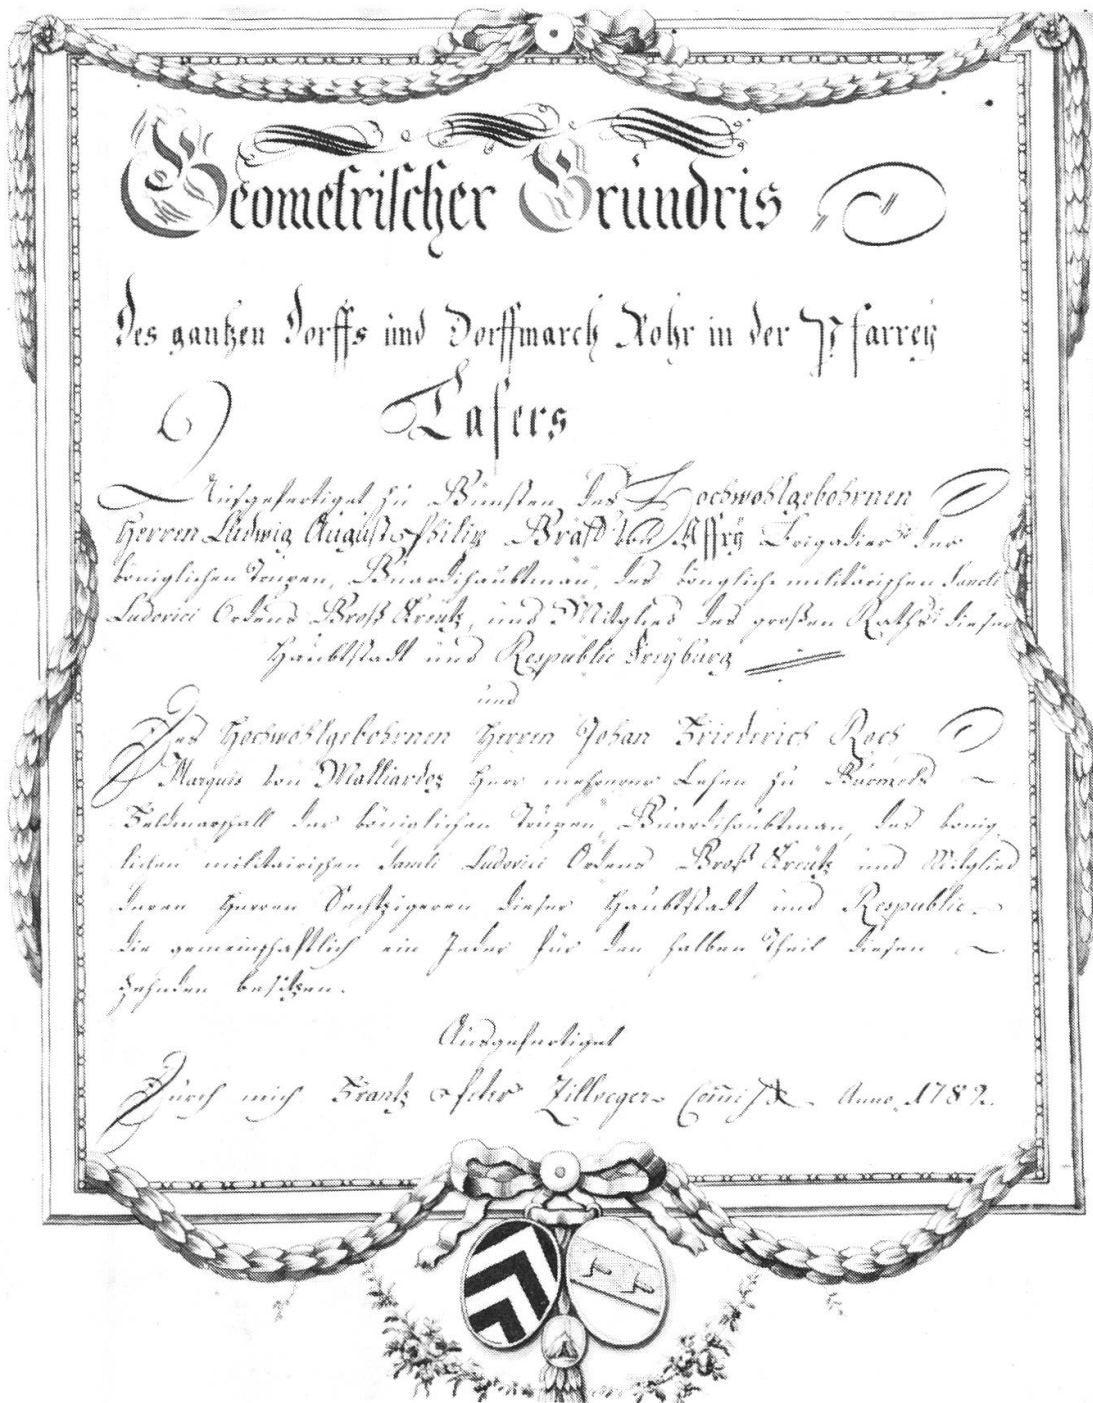 Geometrischer Grundris
des gantzen Dorffs und Dorffmarch Rohr in der Pfarrey
Tafers
Ausgefertiget zu Gunsten des Hochwohlgebohrnen
Herren Ludwig August Philip Graff von Affry Brigadier der
königlichen Trupen, Guardihaubtman, des königliche militärischen Sancti
Ludovici Ordens Groß Kreutz, und Mitglied des großen Raths dieser
Haubtstadt und Respublic Freyburg
und
Des Hochwohlgebohrnen Herren Johan Friederich Roch
Marquis von Malliardoz Herr mehrerer Lehen zu
Feldmarschall der königlichen Trupen, Guardihaubtman, des könig
lichen militairischen Sancti Ludovici Ordens Groß Kreutz und Mitglied
deren Herren Sechtzigeren dieser Haubtstadt und Respublic
die gemeinschaftlich ein Jeder für den halben Theil diesen
Zehnden besitzen.
Ausgefertiget
Durch mich Frantz Peter Zillweger Anno 1782.